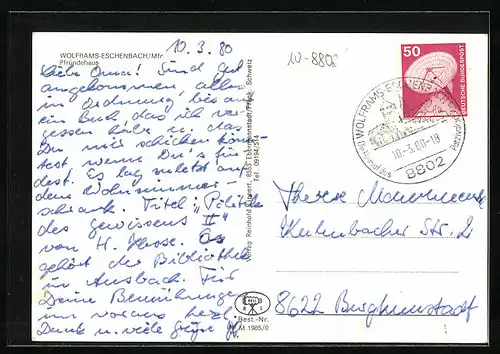 10.3.80
10-8802
WOLFRAMS-ESCHENBACH/Mfr.
Pfründehaus
Liebe Oma! Sind gut
angekommen, alles
in Ordnung, bis auf
ein Buch, das ich ver-
gessen habe u. das
Du mir schicken könn-
test wenn Du's fin-
dest. Es lag zuletzt auf
dem Wohnzimmer-
schrank. Titel: „Politik
des Gewissens II"
von H. Hesse. Es
gehört der Bibliothek
in Ansbach. Für
Deine Bemühungen
im voraus herzl.
Dank u. viele Grüße
Verlag Reinhold 8553 Ebermannstadt/Fränk. Schweiz
Tel. 09194/514
Best.-Nr.
M 1985/0
50
DEUTSCHE BUNDESPOST
WOLFRAMS-ESCHENBACH
10.-3.80-18
8802
Therese
Kulmbacher Str. 2
8622 Burgkunstadt